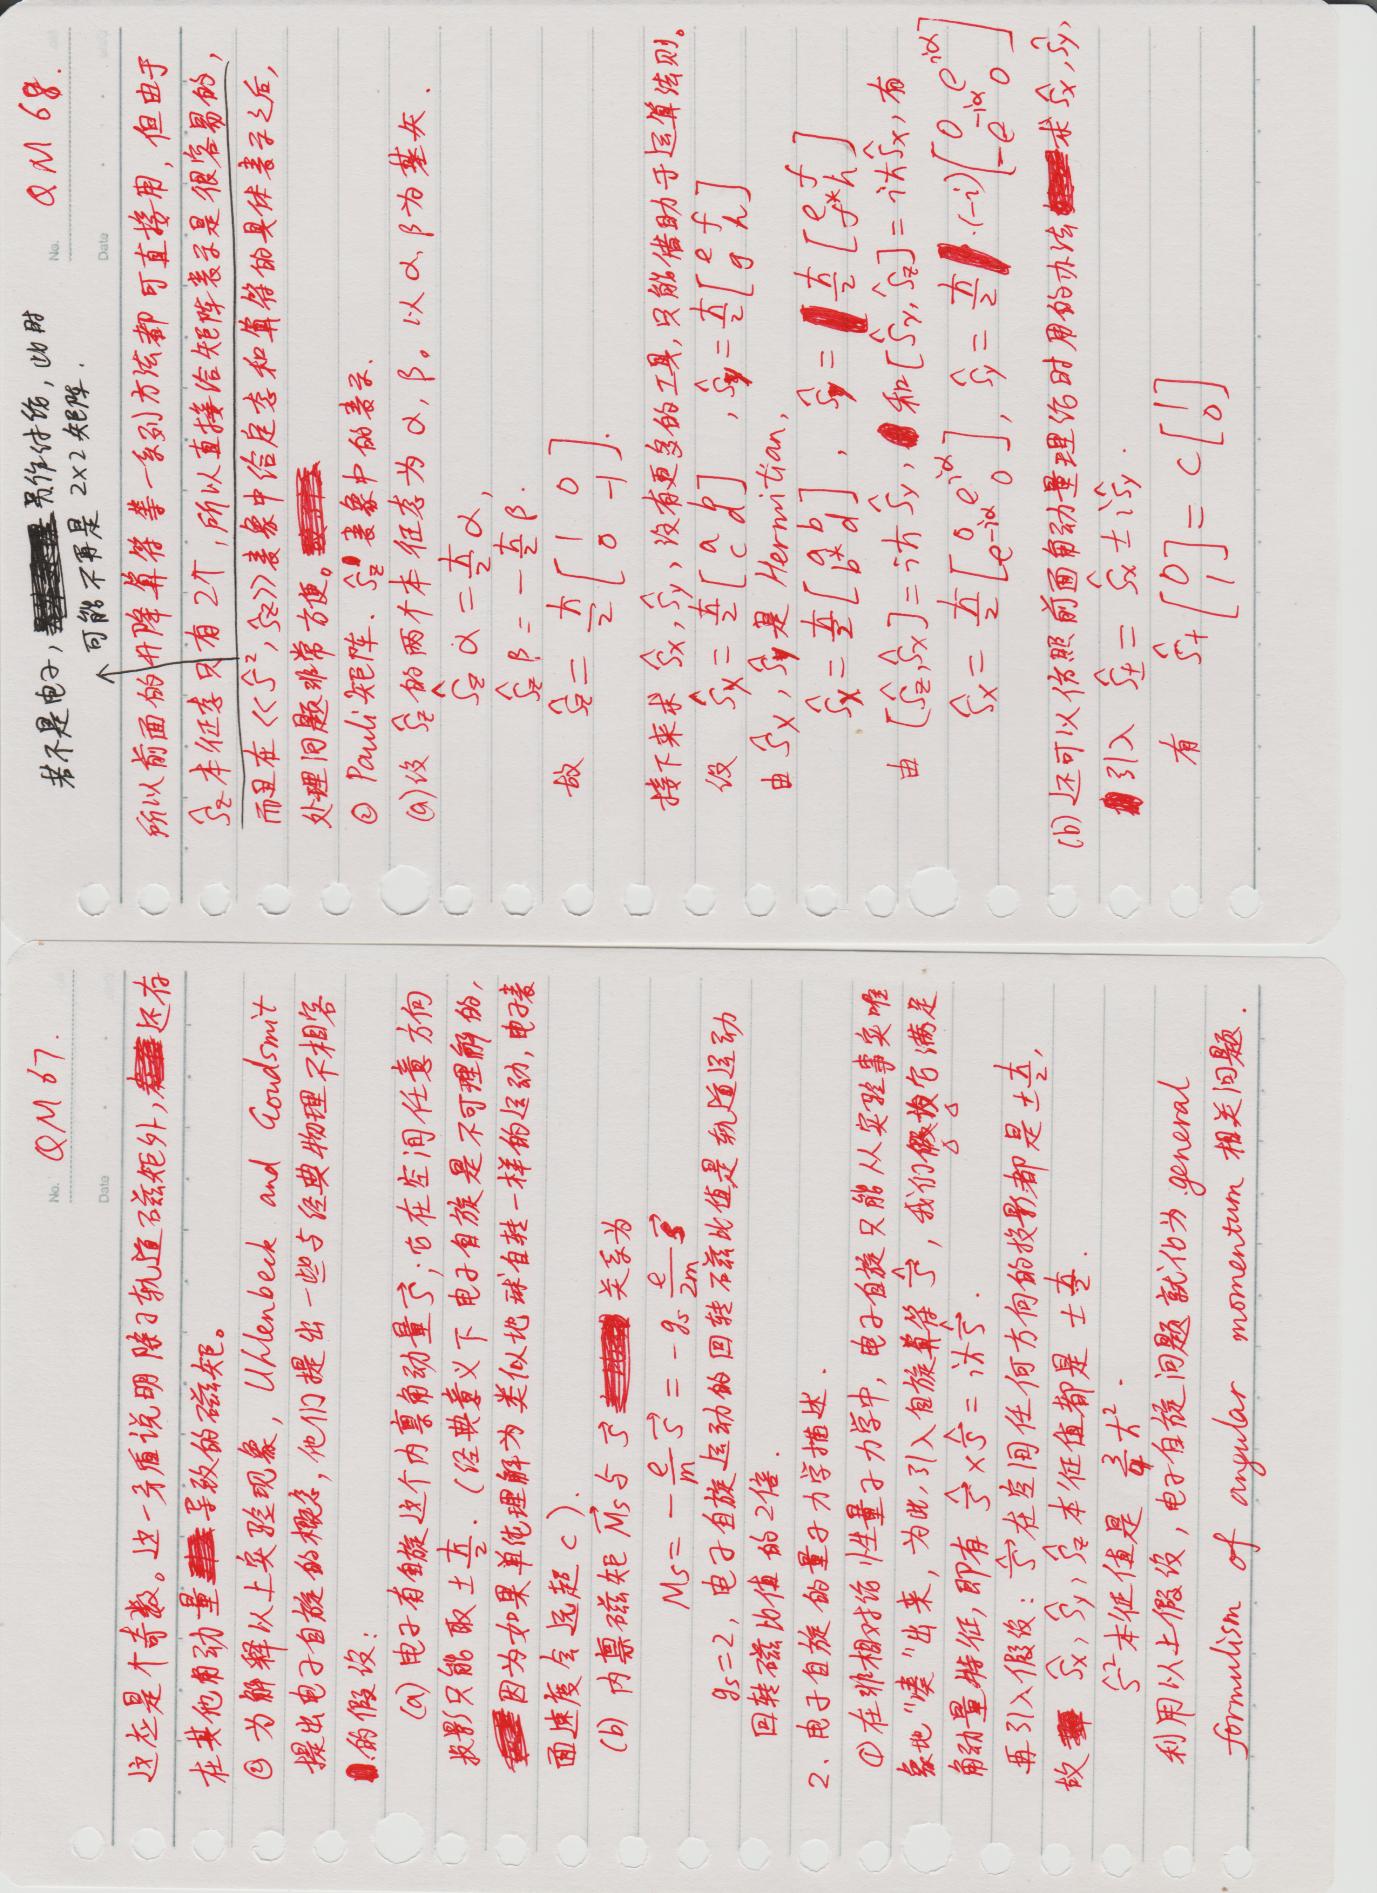 No. QM 67.
Date
这应是个奇数。这一矛盾说明除了轨道磁矩外，还存
在其他角动量导致的磁矩。
② 为解释以上实验现象，Uhlenbeck and Goudsmit
提出电子自旋的概念，他们提出一些与经典物理不相容
的假设：
(a) 电子有自旋这个内禀角动量 $\vec{S}$；它在空间任意方向
投影只能取 $\pm\frac{\hbar}{2}$.（经典意义下电子自旋是不可理解的，
因为如果单纯理解为类似地球自转一样的运动，电子表
面速度会远超 c）.
(b) 内禀磁矩 $\vec{M}_s$ 与 $\vec{S}$ 关系为
$M_s = -\frac{e}{m}\vec{S} = -g_s\frac{e}{2m}\vec{S}$
$g_s=2$，电子自旋运动的回转磁比值是轨道运动
回转磁比值的2倍.
2. 电子自旋的量子力学描述.
① 在非相对论性量子力学中，电子自旋只能从实验事实唯
象地“凑”出来，为此，引入自旋算符 $\hat{\vec{S}}$，我们假设它满足
角动量特征，即有 $\hat{\vec{S}}\times\hat{\vec{S}} = i\hbar\hat{\vec{S}}$.
再引入假设：$\hat{\vec{S}}$ 在空间任何方向的投影都是 $\pm\frac{\hbar}{2}$，
故 $\hat{S}_x, \hat{S}_y, \hat{S}_z$ 本征值都是 $\pm\frac{\hbar}{2}$.
$\hat{S}^2$ 本征值是 $\frac{3}{4}\hbar^2$.
利用以上假设，电子自旋问题就化为 general
formulism of angular momentum 相关问题.
若不是电子，另作讨论，此时
可能不再是 2×2 矩阵.
No. QM 68.
Date
所以前面的升降算符等一系列方法都可直接用，但由于
$\hat{S}_z$ 本征态只有2个，所以直接给矩阵表示是很容易的，
而且在 《$\hat{S}^2, \hat{S}_z$》表象中给定态和算符的具体表示之后，
处理问题非常方便。
② Pauli 矩阵. $\hat{S}_z$ 表象中的表示.
(a) 设 $\hat{S}_z$ 的两个本征态为 α, β。以 α, β 为基矢.
$\hat{S}_z α = \frac{\hbar}{2} α$,
$\hat{S}_z β = -\frac{\hbar}{2} β$.
故 $\hat{S}_z = \frac{\hbar}{2}\begin{bmatrix}1 & 0\\0 & -1\end{bmatrix}$.
接下来求 $\hat{S}_x, \hat{S}_y$，没有更多的工具，只能借助于运算法则。
设 $\hat{S}_x = \frac{\hbar}{2}\begin{bmatrix}a & b\\c & d\end{bmatrix}$, $\hat{S}_y = \frac{\hbar}{2}\begin{bmatrix}e & f\\g & h\end{bmatrix}$
由 $\hat{S}_x, \hat{S}_y$ 是 Hermitian,
$\hat{S}_x = \frac{\hbar}{2}\begin{bmatrix}a & b\\b^* & d\end{bmatrix}$, $\hat{S}_y = \frac{\hbar}{2}\begin{bmatrix}e & f\\f^* & h\end{bmatrix}$
由 $[\hat{S}_z, \hat{S}_x] = i\hbar\hat{S}_y$, 和 $[\hat{S}_y, \hat{S}_z] = i\hbar\hat{S}_x$, 有
$\hat{S}_x = \frac{\hbar}{2}\begin{bmatrix}0 & e^{iα}\\e^{-iα} & 0\end{bmatrix}$, $\hat{S}_y = \frac{\hbar}{2}\cdot(-i)\begin{bmatrix}0 & e^{iα}\\-e^{-iα} & 0\end{bmatrix}$
(b) 还可以仿照前面角动量理论时用的办法求 $\hat{S}_x, \hat{S}_y$,
引入 $\hat{S}_\pm = \hat{S}_x \pm i\hat{S}_y$.
有 $\hat{S}_+\begin{bmatrix}0\\1\end{bmatrix} = c\begin{bmatrix}1\\0\end{bmatrix}$